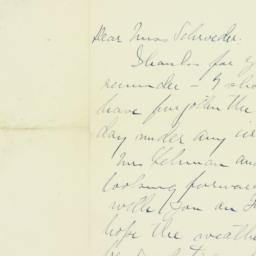 Dear Miss Schroeder.
Thanks for y
reminder - I sho
have forgotten the
day under any
Mrs Lehman and
looking forward
with you on F
hope the weath
be